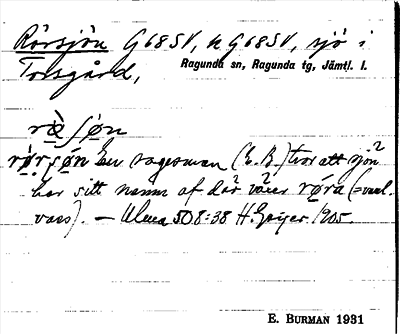 Rörsjön G68SV, h G68SV, sjö i
Torsgård, Ragunda sn, Ragunda tg, Jämtl. l.
rø̀ʃøn
rø̀rsøn En sagesman (E. B.) tror att sjön
har sitt namn af där växer røra (=
vass). — Ulma 508:38 H. Geijer 1905.
E. BURMAN 1931